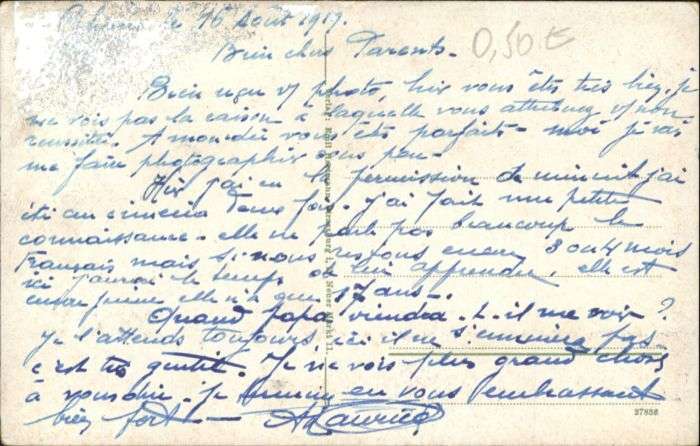 le 16 Août 1919.
0,50 €
Bien chers Parents.
Bien reçu vs photo, vous êts très bien, je
ne vois pas la raison à laquelle vous attribuez vs non
réussite. A mon idée vous êts parfaits - moi je vais
me faire photographier sous peu -
Hier j'ai eu la permission de minuit j'ai
été au cinéma deux fois. j'ai fait une petite
connaissance. elle ne parle pas beaucoup le
Français mais si nous restons encore 3 ou 4 mois
ici j'aurai le temps de lui apprendre, elle est
encore jeune elle n'a que 17 ans.
Quand Papa viendra-t-il me voir ?
Je l'attends toujours, ici il ne s'ennuiera pas
c'est très gentil. Je ne vois plus grand chose
à vous dire. je termine en vous embrassant
bien fort - Maurice
27858